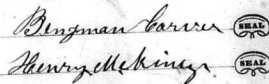 Bengman Carver SEAL
Henry McKiney SEAL